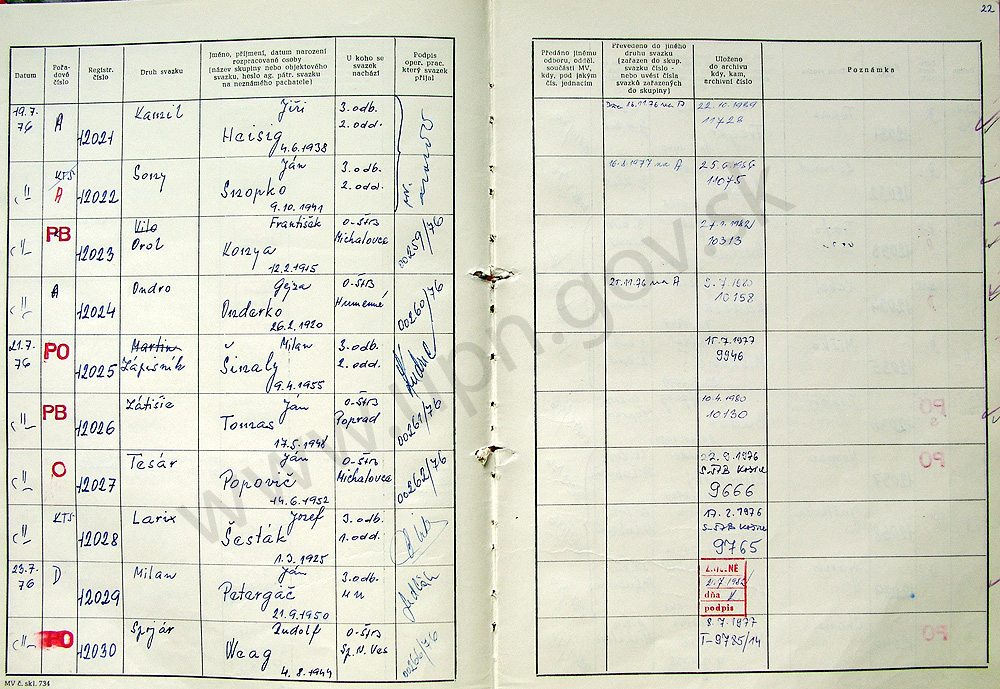 22
Datum
Pořa-
dové
číslo
Registr.
číslo
Druh svazku
Jméno, příjmení, datum narození
rozpracované osoby
(název skupiny nebo objektového
svazku, heslo ag. pátr. svazku
na neznámého pachatele)
U koho se
svazek
nachází
Podpis
oper. prac.
který svazek
přijal
Předáno jinému
odboru, odděl.
součásti MV,
kdy, pod jakým
čís. jednacím
Převedeno do jiného
druhu svazku
(zařazen do skup.
svazku číslo -
nebo uvést čísla
svazků zařazených
do skupiny)
Uloženo
do archivu
kdy, kam,
archivní číslo
Poznámka
19.7.
76
A
12021
Kamil
Jiří
Heisig
4.6.1938
3. odb.
2. odd.
16.11.76 na A
22.10.1989
11428
"
KTS
A
12022
Sony
Ján
Snopko
9.10.1941
3. odb.
2. odd.
na A
11075
"
PB
12023
Orol
František
Konya
12.2.1915
O-ŠtB
Michalovce
00259/76
10313
"
A
12024
Ondro
Gejza
Ondarko
26.2.1920
O-ŠtB
Humenné
00260/76
25.11.76 na A
5.7.1980
10158
21.7.
76
PO
12025
Martin
Zápisník
Milan
Šinaly
9.4.1955
3. odb.
2. odd.
15.7.1977
9946
"
PB
12026
Zátišie
Ján
Tomas
17.5.1948
O-ŠtB
Poprad
00261/76
10.4.1980
10130
"
O
12027
Tesár
Ján
Popovič
14.6.1952
O-ŠtB
Michalovce
00262/76
22.9.1976
S-ŠtB Košice
9666
"
KTS
12028
Larix
Jozef
Šesták
1.3.1925
3. odb.
1. odd.
S-ŠtB Košice
9765
23.7.
76
D
12029
Milan
Ján
Petergáč
21.9.1950
3. odb.
dňa
podpis
"
PO
12030
Spojár
Rudolf
Weag
4.8.1944
O-ŠtB
Sp. N. Ves
00266/76
8.7.1977
T-9785/14
MV č. skl. 734
www.upn.gov.sk